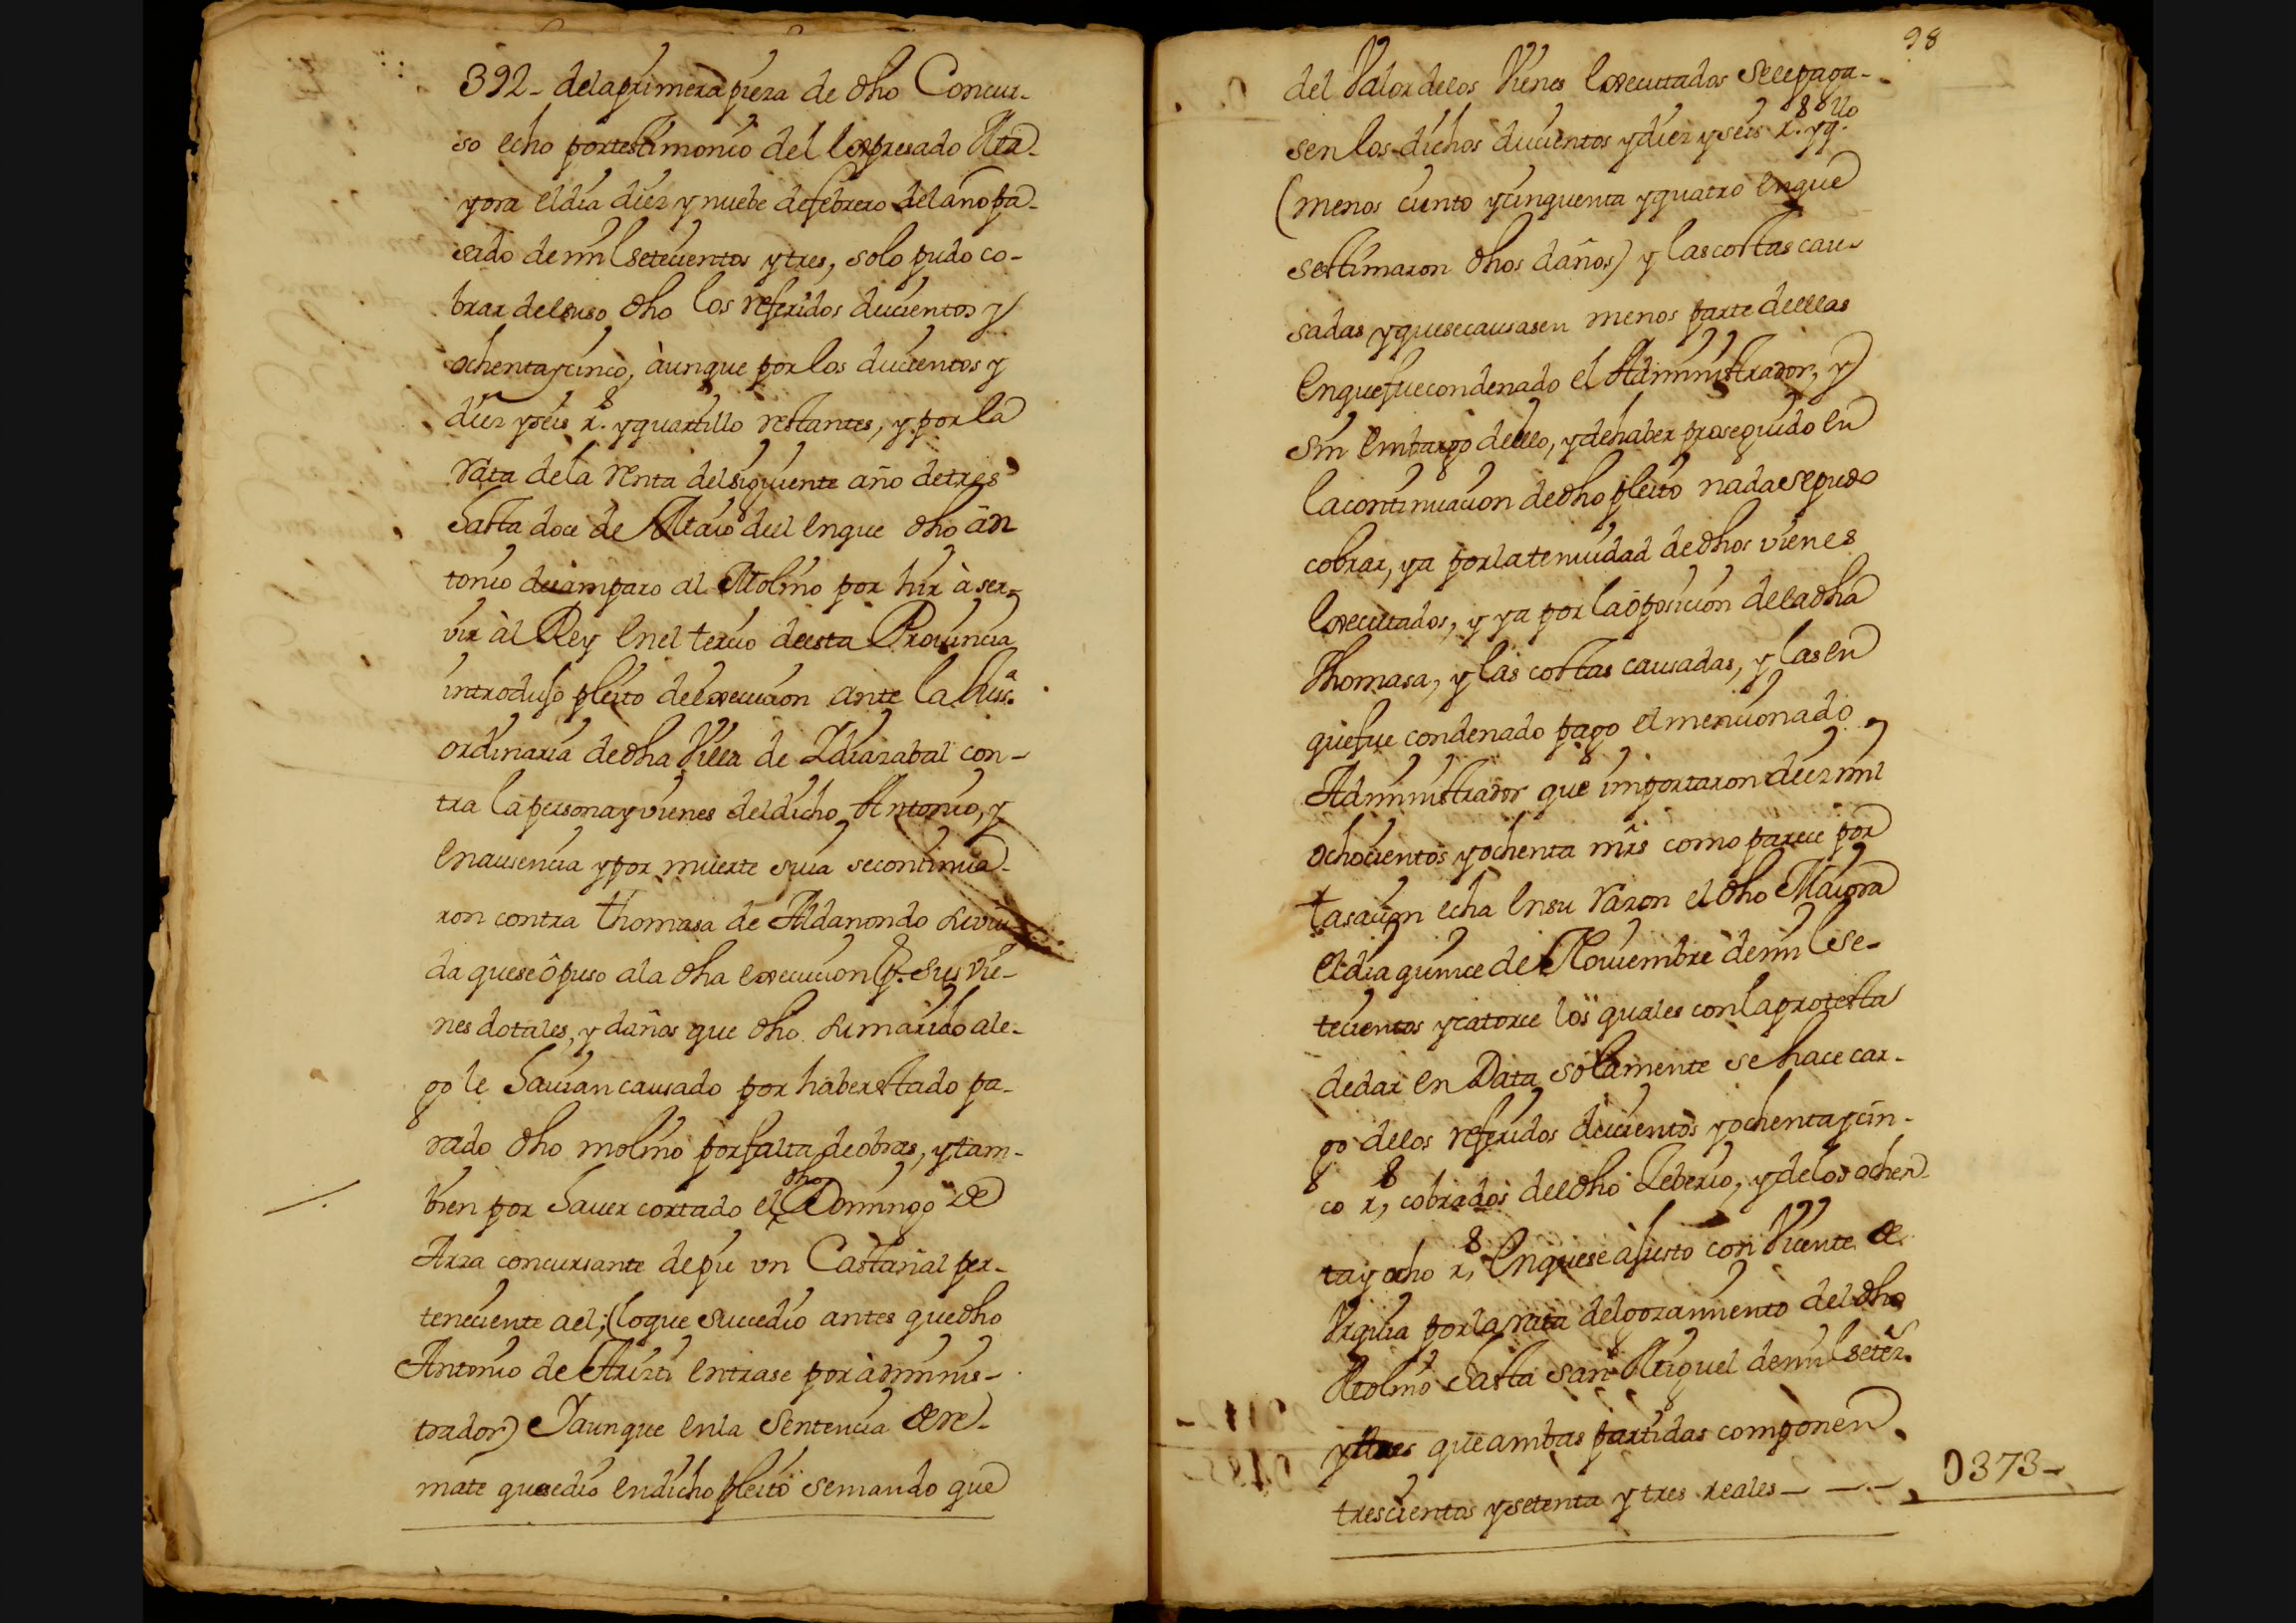 392- de la primera pieza de dho Concur-
so echo por testimonio del Expresado Ma-
yora el dia diez y nuebe de febrero del año pa-
sado de mil setecientos y tres, solo pudo co-
brar del suso dho los referidos ducientos y
ochenta y cinco, àunque por los ducientos y
diez y seis r.s y quartillo restantes, y por la
rata de la renta del siguiente año de tres
hasta doce de Maio del en que dho àn
tonio desamparo al Molino por hir à ser-
vir àl Rey en el tercio de esta Prouincia
introdujo pleito de execucion ante la Jus.a
ordinaria de dha Villa de Idiazabal con-
tra la persona y vienes del dicho Antonio, y
en ausencia y por muerte suia se continua-
ron contra thomasa de Aldanondo su viu-
da que se òpuso a la dha execucion p.r sus vie-
nes dotales, y daños que dho su marido ale-
go le hauian causado por haber estado pa-
rado dho molino por falta de obras, y tam-
bien por hauer cortado el dho Domingo de
Arza concursante de pie vn Castañal per-
teneciente a el; (lo que sucedio antes que dho
Antonio de Aristi entrase por àdminis-
trador) Y aunque en la Sentencia de re-
mate que se dio en dicho pleito se mando que
98
del Valor de los Vienes Executados se le paga-
sen los dichos ducientos y diez y seis r.s y q.llo
(menos ciento y cinquenta y quatro en que
se estimaron dhos daños) y las costas cau-
sadas y que se causasen menos parte de ellas
en que fue condenado el Administrador, y
sin embargo de ello, y de haber proseguido en
la continuacion de dho pleito nada se pudo
cobrar, ya por la tenuidad de dhos vienes
Executados, y ya por la òposicion de la dha
Thomasa, y las costas causadas, y las en
que fue condenado pago el mencionado
Administrador que importaron diez mil
ochocientos y ochenta mrs como parece por
tasacion echa en su razon el dho Maiora
el dia quince de Nouiembre de mil se-
tecientos y catorce los quales con la protesta
de dar en Data solamente se hace car-
go de los referidos ducientos y ochenta y cin-
co r.s, cobrados de el dho Zeberio, y de los ochen-
ta y ocho r.s, en que se ajusto con Vicente de
Vrquia por la rata del gozamiento del dho
Molino hasta san Miguel de mil seteз.
y tres que ambas partidas componen
trescientos y setenta y tres reales - - - 0373-